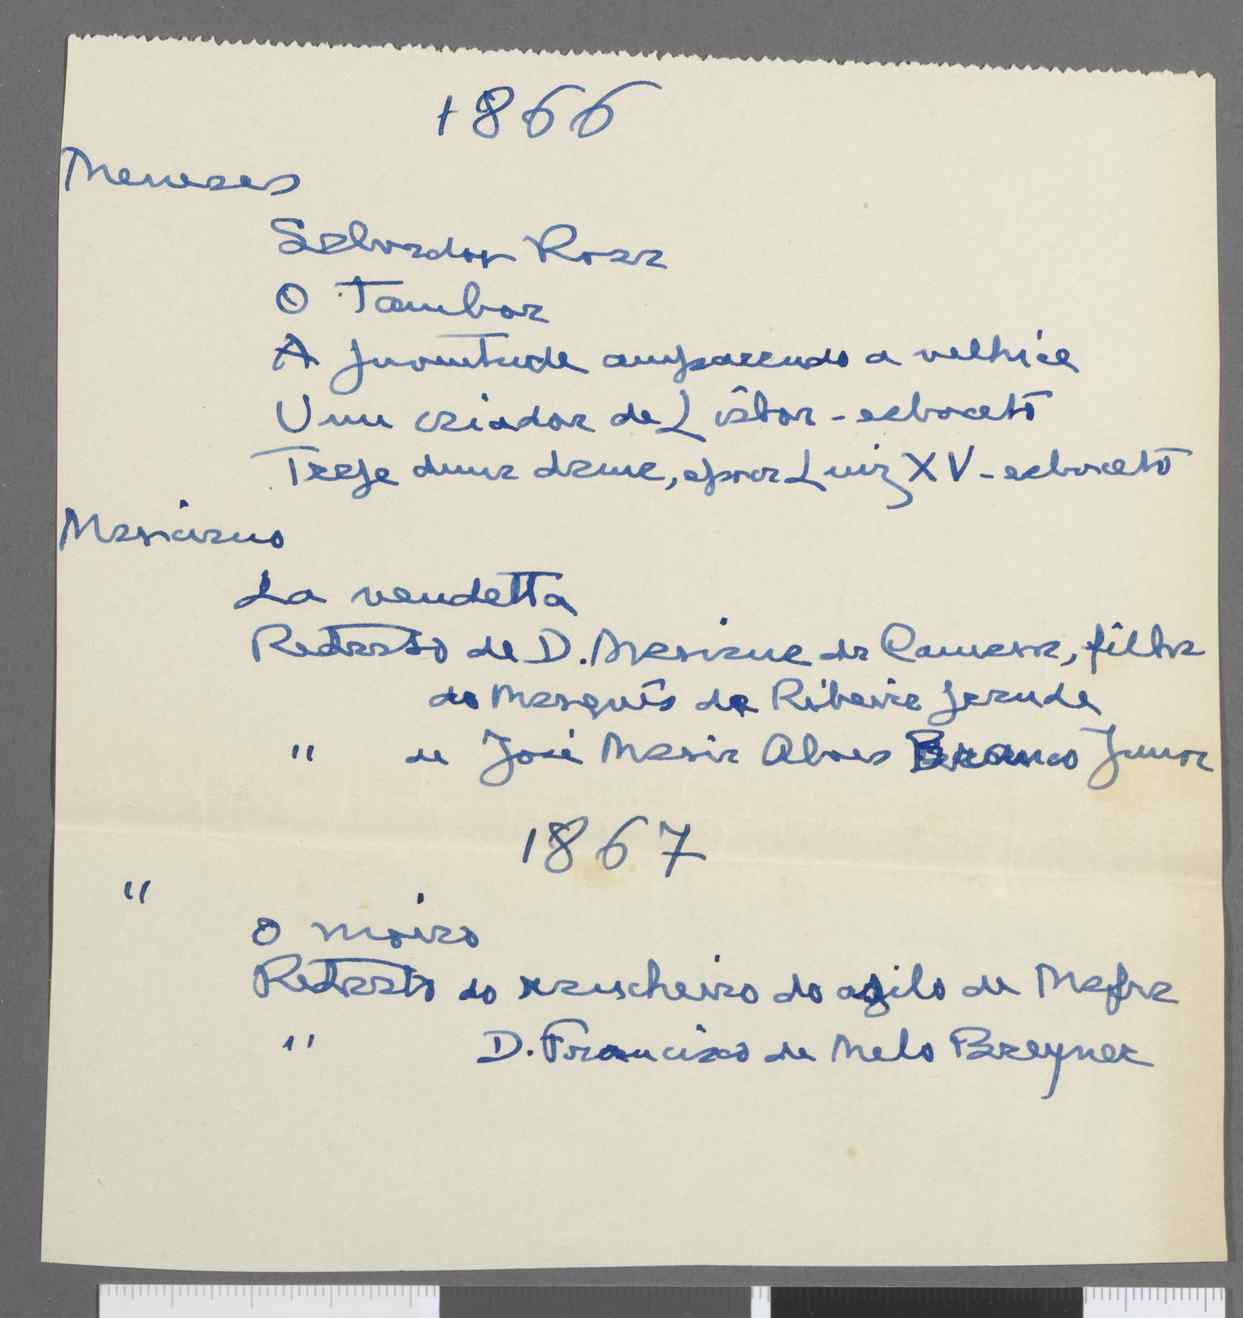 1866
Meneses
Salvador Rosa
O Tambor
A juventude amparando a velhice
Um criador de Lisboa - esboceto
Traje duma dama, epoca Luiz XV - esboceto
Mariano
La vendetta
Retrato de D. Mariana da Camara, filha
do Marquês da Ribeira Grande
" de José Maria Alves Branco Junor
1867
"
O moiro
Retrato do rancheiro do asilo de Mafra
" D. Francisco de Melo Breyner